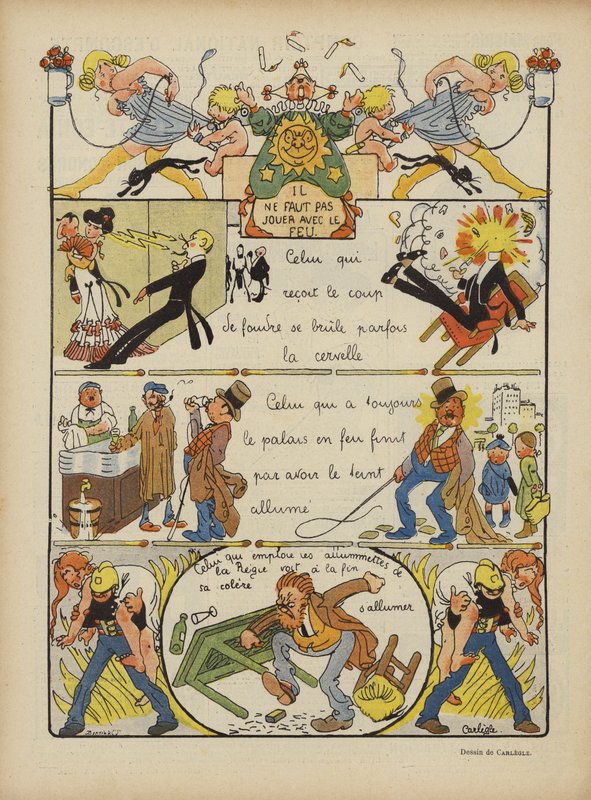 IL
NE FAUT PAS
JOUER AVEC LE
FEU.
Celui qui
reçoit le coup
de foudre se brûle parfois
la cervelle
Celui qui a toujours
le palais en feu finit
par avoir le teint
allumé
Celui qui emploie les allummettes de
la Régie voit à la fin
sa colère
s'allumer
Carlègle.
Dessin de CARLÈGLE.